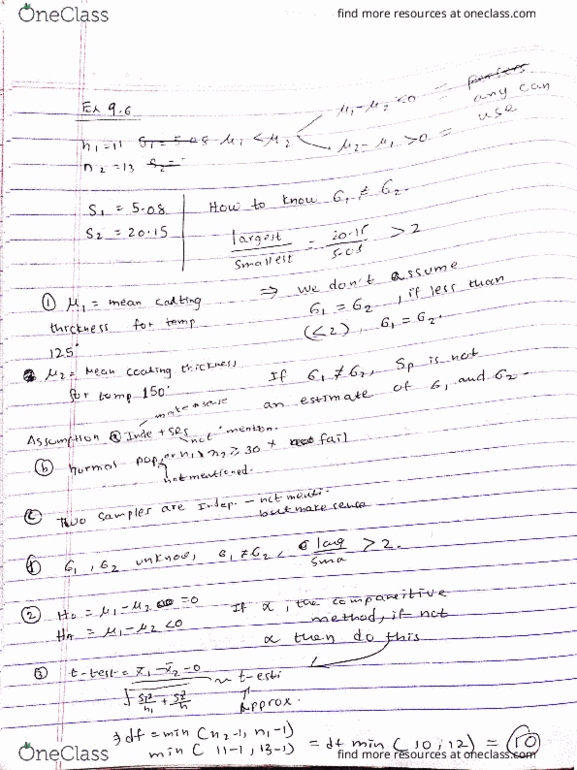 OneClass
find more resources at oneclass.com
Ex 9.6
μ₁-μ₂ <0 =
any can
use
n₁=11 S₁ = 5.08 μ₁ < μ₂
μ₂-μ₁ >0 =
n₂=13 S₂ =
S₁ = 5.08
How to know σ₁ ≠ σ₂.
S₂ = 20.15
largest / smallest = 20.15 / 5.08 > 2
① μ₁ = mean coating
thickness for temp
125°
⇒ we don't assume
σ₁ = σ₂, if less than
(<2), σ₁ = σ₂.
μ₂ = mean coating thickness,
for temp 150°
If σ₁ ≠ σ₂, Sp is not
an estimate of σ₁ and σ₂.
make sense
Assumption ⓐ Inde + SRS
not mention.
ⓑ normal pop, or n₁, n₂ ≥ 30 × fail
not mentioned.
ⓒ Two samples are Indep. - not menti.
but make sense
σ₁, σ₂ unknow, σ₁ ≠ σ₂, larg / sma > 2.
② H₀ = μ₁-μ₂ =0
Hₐ = μ₁-μ₂ <0
If α, the comparitive
method, if not
α then do this
③ t-test = x̄₁ - x̄₂ - 0 ~ t-esti
Approx.
⇒ df = min (n₂-1, n₁-1)
min ( 11-1, 13-1) = df min ( 10, 12) = 10
OneClass
find more resources at oneclass.com